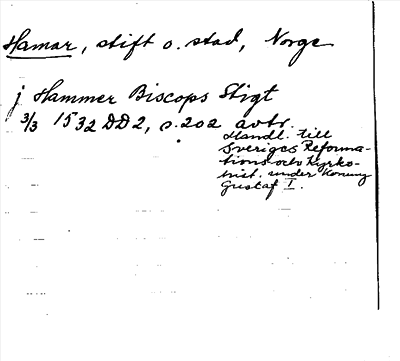 Hamar, stift o. stad, Norge
j Hammer Biscops Stigt
3/3 1532 DD2, s. 202 avtr.
Handl. till
Sveriges Reforma-
tions och Kyrko-
hist. under Konung
Gustaf I.